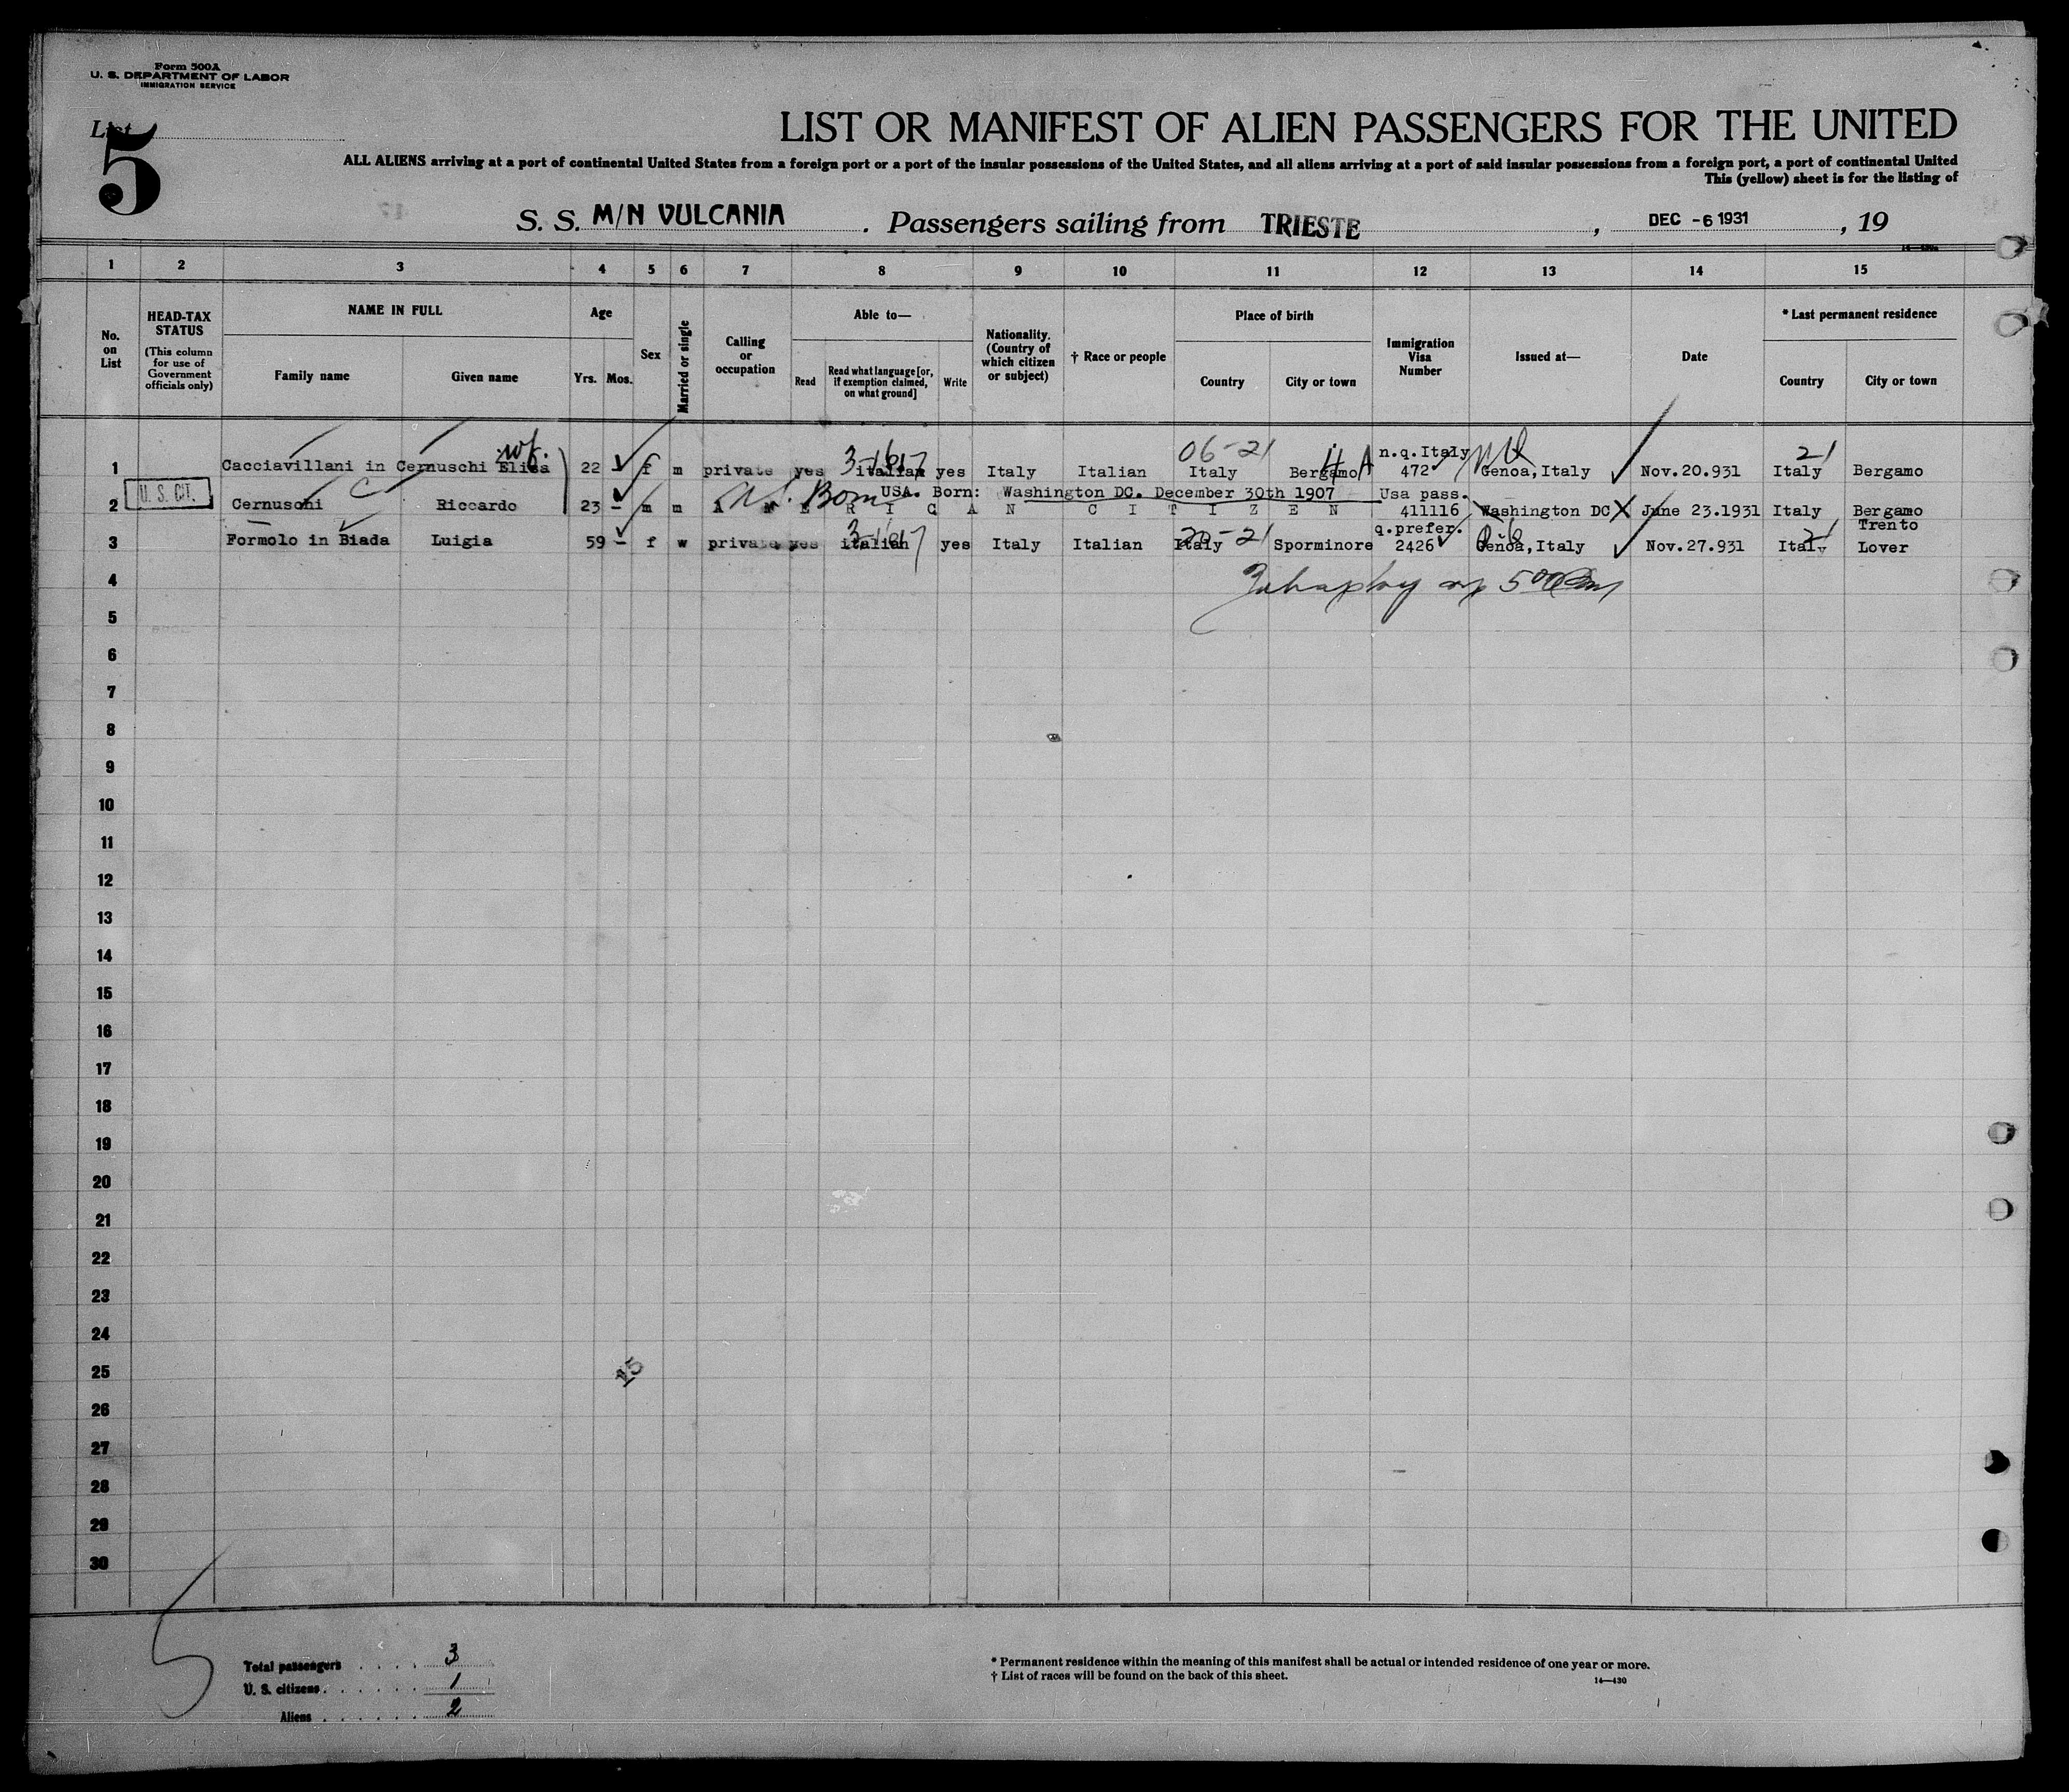 Form 500A
U. S. DEPARTMENT OF LABOR
IMMIGRATION SERVICE
List
5
LIST OR MANIFEST OF ALIEN PASSENGERS FOR THE UNITED
ALL ALIENS arriving at a port of continental United States from a foreign port or a port of the insular possessions of the United States, and all aliens arriving at a port of said insular possessions from a foreign port, a port of continental United
This (yellow) sheet is for the listing of
S. S. M/N VULCANIA . Passengers sailing from TRIESTE , DEC -6 1931 , 19
1 2 3 4 5 6 7 8 9 10 11 12 13 14 15
No. on List
HEAD-TAX STATUS (This column for use of Government officials only)
NAME IN FULL
Family name Given name
Age
Yrs. Mos.
Sex
Married or single
Calling or occupation
Able to—
Read
Read what language [or, if exemption claimed, on what ground]
Write
Nationality. (Country of which citizen or subject)
† Race or people
Place of birth
Country City or town
Immigration Visa Number
Issued at—
Date
* Last permanent residence
Country City or town
wf. 06-21 n.q.Italy 21
1 Cacciavillani in Cernuschi Elisa 22 - f m private yes italian yes Italy Italian Italy Bergamo 472 Genoa, Italy Nov.20.931 Italy Bergamo
U. S. CIT. C U.S. Born USA. Born: Washington DC. December 30th 1907 Usa pass.
2 Cernuschi Riccardo 23 - m m A M E R I C A N C I T I Z E N 411116 Washington DC X June 23.1931 Italy Bergamo
q.prefer. Trento
3 Formolo in Biada Luigia 59 - f w private yes italian yes Italy Italian Italy Sporminore 2426 Genoa, Italy Nov.27.931 Italy Lover
4
5
6
7
8
9
10
11
12
13
14
15
16
17
18
19
20
21
22
23
24
25
26
27
28
29
30
15
5
Total passengers . . . . 3
U. S. citizens . . . . . . 1
Aliens . . . . . . 2
* Permanent residence within the meaning of this manifest shall be actual or intended residence of one year or more.
† List of races will be found on the back of this sheet.
14—430